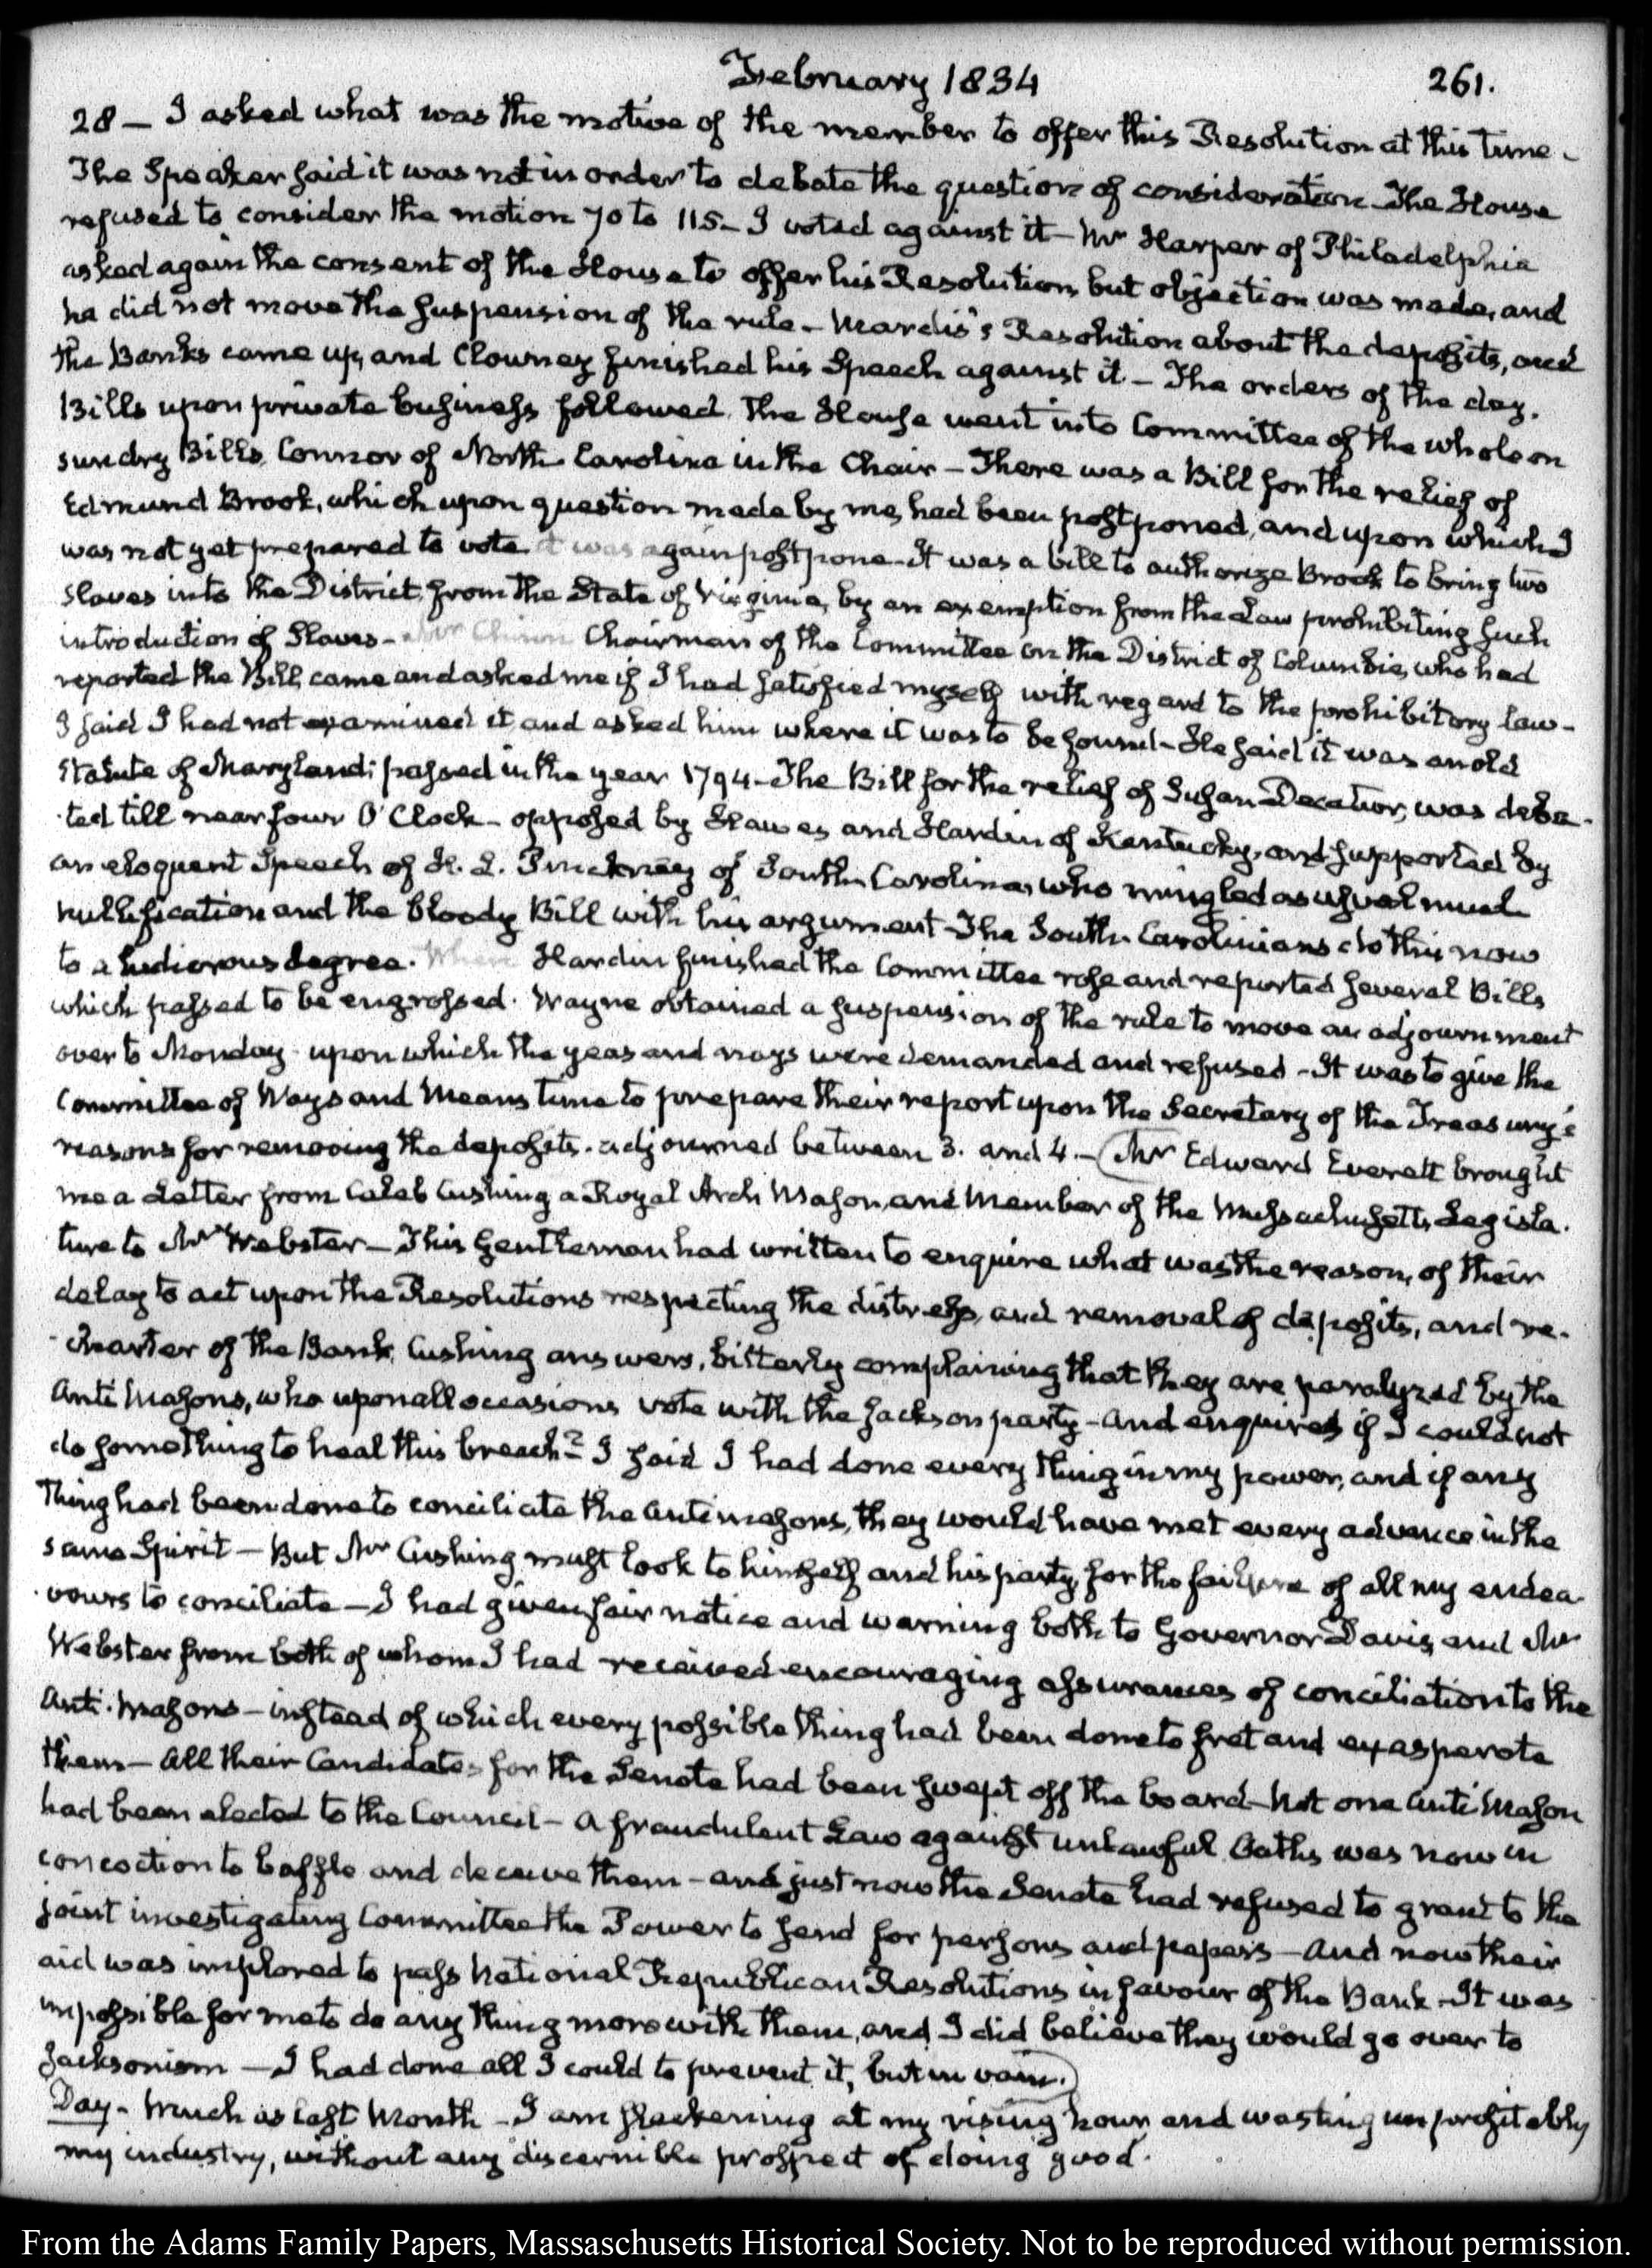 February 1834
261.
28 — I asked what was the motive of the member to offer this Resolution at this time -
The Speaker said it was not in order to debate the question of consideration - The House
refused to consider the motion 70 to 115 - I voted against it - Mr Harper of Philadelphia
asked again the consent of the House to offer his Resolution, but objection was made, and
he did not move the suspension of the rule - Mardis's Resolution about the deposits, and
the Banks came up, and Clowney finished his Speech against it - The orders of the day.
Bills upon private business followed. The House went into Committee of the whole on
sundry Bills. Connor of North Carolina in the Chair - There was a Bill for the relief of
Edmund Brook, which upon question made by me, had been postponed, and upon which I
was not yet prepared to vote it was again postpone - It was a bill to authorize Brook to bring two
Slaves into the District, from the State of Virginia, by an exemption from the Law prohibiting such
introduction of Slaves - Mr Chinn Chairman of the Committee on the District of Columbia, who had
reported the Bill, came and asked me if I had satisfied myself with regard to the prohibitory law -
I said I had not examined it, and asked him where it was to be found - He said it was an old
Statute of Maryland; passed in the year 1794 - The Bill for the relief of Susan Decatur, was deba-
ted till near four O'Clock - opposed by Hawes and Hardin of Kentucky, and supported by
an eloquent Speech of H. L. Pinckney of South Carolina, who mingled as usual much
nullification and the bloody Bill with his argument - The South Carolinians do this now
to a ludicrous degree. When Hardin finished the Committee rose and reported several Bills
which passed to be engrossed. Wayne obtained a suspension of the rule to move an adjournment
over to Monday - upon which the yeas and nays were demanded and refused - It was to give the
Committee of Ways and Means time to prepare their report upon the Secretary of the Treasury's
reasons for removing the deposits. adjourned between 3. and 4. - (Mr Edward Everett brought
me a Letter from Caleb Cushing a Royal Arch Mason, and Member of the Massachusetts Legisla-
ture to Mr Webster - This Gentleman had written to enquire what was the reason, of their
delay to act upon the Resolutions respecting the distress, and removal of deposits, and re-
-charter of the Bank. Cushing answers, bitterly complaining that they are paralyzed by the
Anti Masons, who upon all occasions vote with the Jackson party - and enquires if I could not
do something to heal this breach? I said I had done every thing in my power, and if any
thing had been done to conciliate the antimasons, they would have met every advance in the
same Spirit - But Mr Cushing must look to himself and his party, for the failure of all my endea-
-vours to conciliate - I had given fair notice and warning both to Governor Davis, and Mr
Webster from both of whom I had received encouraging assurances of conciliation to the
Anti-Masons - instead of which every possible thing had been done to fret and exasperate
them - All their Candidates for the Senate had been swept off the board - Not one Anti Mason
had been elected to the Council - A fraudulent Law against unlawful Oaths was now in
concoction to baffle and deceive them - and just now the Senate had refused to grant to the
joint investigating Committee the Power to send for persons and papers - And now their
aid was implored to pass National Republican Resolutions in favour of the Bank - It was
impossible for me to do any thing more with them, and I did believe they would go over to
Jacksonism - I had done all I could to prevent it, but in vain.)
Day - Much as last Month - I am slackening at my rising hour and wasting unprofitably
my industry, without any discernible prospect of doing good.
From the Adams Family Papers, Massachusetts Historical Society. Not to be reproduced without permission.